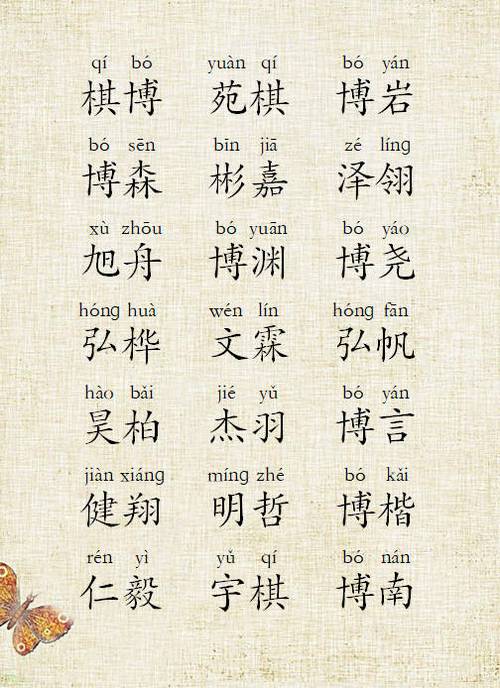 qí bó yuàn qí bó yán
棋博 苑棋 博岩
bó sēn bīn jiā zé líng
博森 彬嘉 泽翎
xù zhōu bó yuān bó yáo
旭舟 博渊 博尧
hóng huà wén lín hóng fān
弘桦 文霖 弘帆
hào bǎi jié yǔ bó yán
昊柏 杰羽 博言
jiàn xiáng míng zhé bó kǎi
健翔 明哲 博楷
rén yì yǔ qí bó nán
仁毅 宇棋 博南